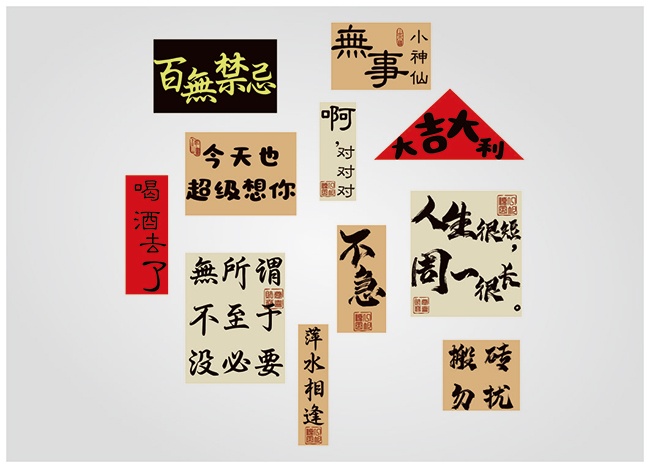 百無禁忌
無事
小神仙
啊，
对对对
大吉大利
今天也
超级想你
喝酒去了
人生很短，
周一很长。
不急
無所謂
不至于
没必要
萍水相逢
搬砖
勿扰